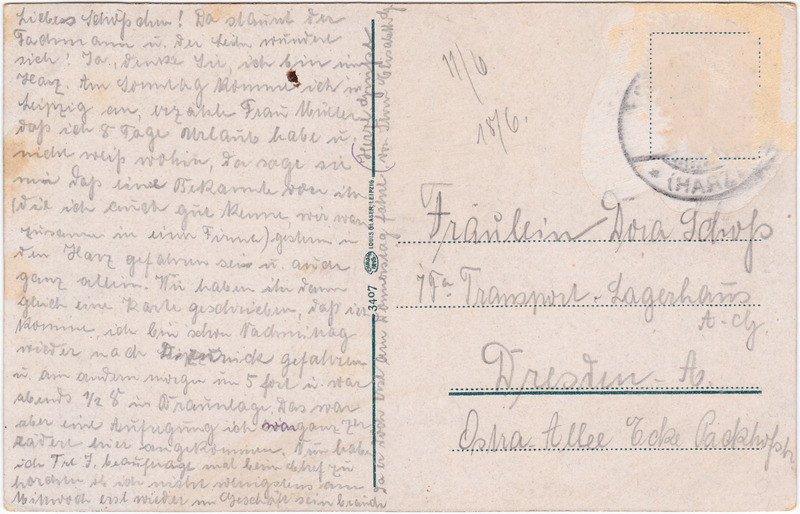 Liebes Schößchen! Da staunt der
Fachmann u. der Leie wundert
sich! Ja, denke Sie, ich bin im
Harz. Am Sonntag komme ich in
Leipzig an, erzähle Frau Müller
daß ich 8 Tage Urlaub habe u.
nicht weiß wohin, da sagt sie
mir daß eine Bekannte von ihr
(die ich auch gut kenne, wir waren
zusammen in einer Firma) gestern in
den Harz gefahren sei u. auch
ganz allein. Wir haben ihr dann
gleich eine Karte geschrieben, daß ich
komme, ich bin schon Nachmittag
wieder nach gefahren
u. am andern morgen um 5 fort u. war
abends 1/2 8 in Braunlage. Das war
aber eine Aufregung ich war ganz
hier angekommen. Nun habe
ich Frl. J. beauftragt mal beim Chef zu
horchen ob ich nicht wenigstens am
Mittwoch erst wieder im Geschäft sein brauche
da er doch erst am Donnerstag fährt (von Ihrer Elisabeth G.
Herzl. Grüße
3407
LOUIS GLASER, LEIPZIG
11/6
18/6.
(HARZ)
Fräulein Dora Schoß
Fa. Transport-Lagerhaus
A-G.
Dresden-A.
Ostra Allee Ecke Packhofstr.